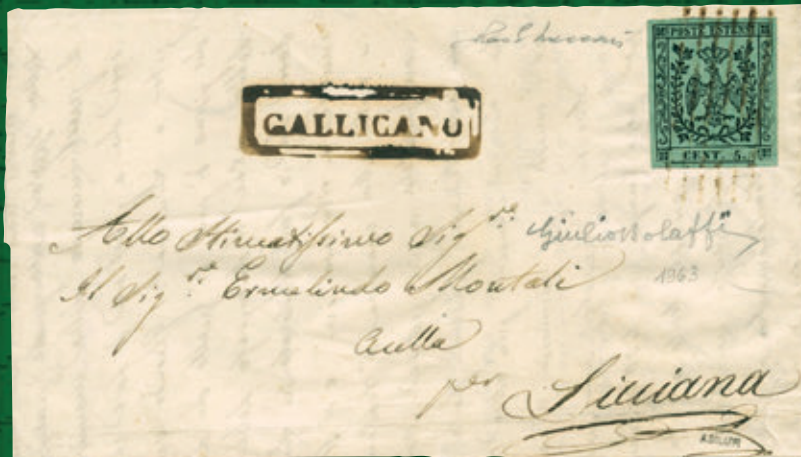 POSTE ESTENSI
CENT. 5.
GALLICANO
Allo Stimatissimo Sigre:
Giulio Bolaffi
Il Sigre: Ermelindo Montali
1963
Aulla
per
Liciana